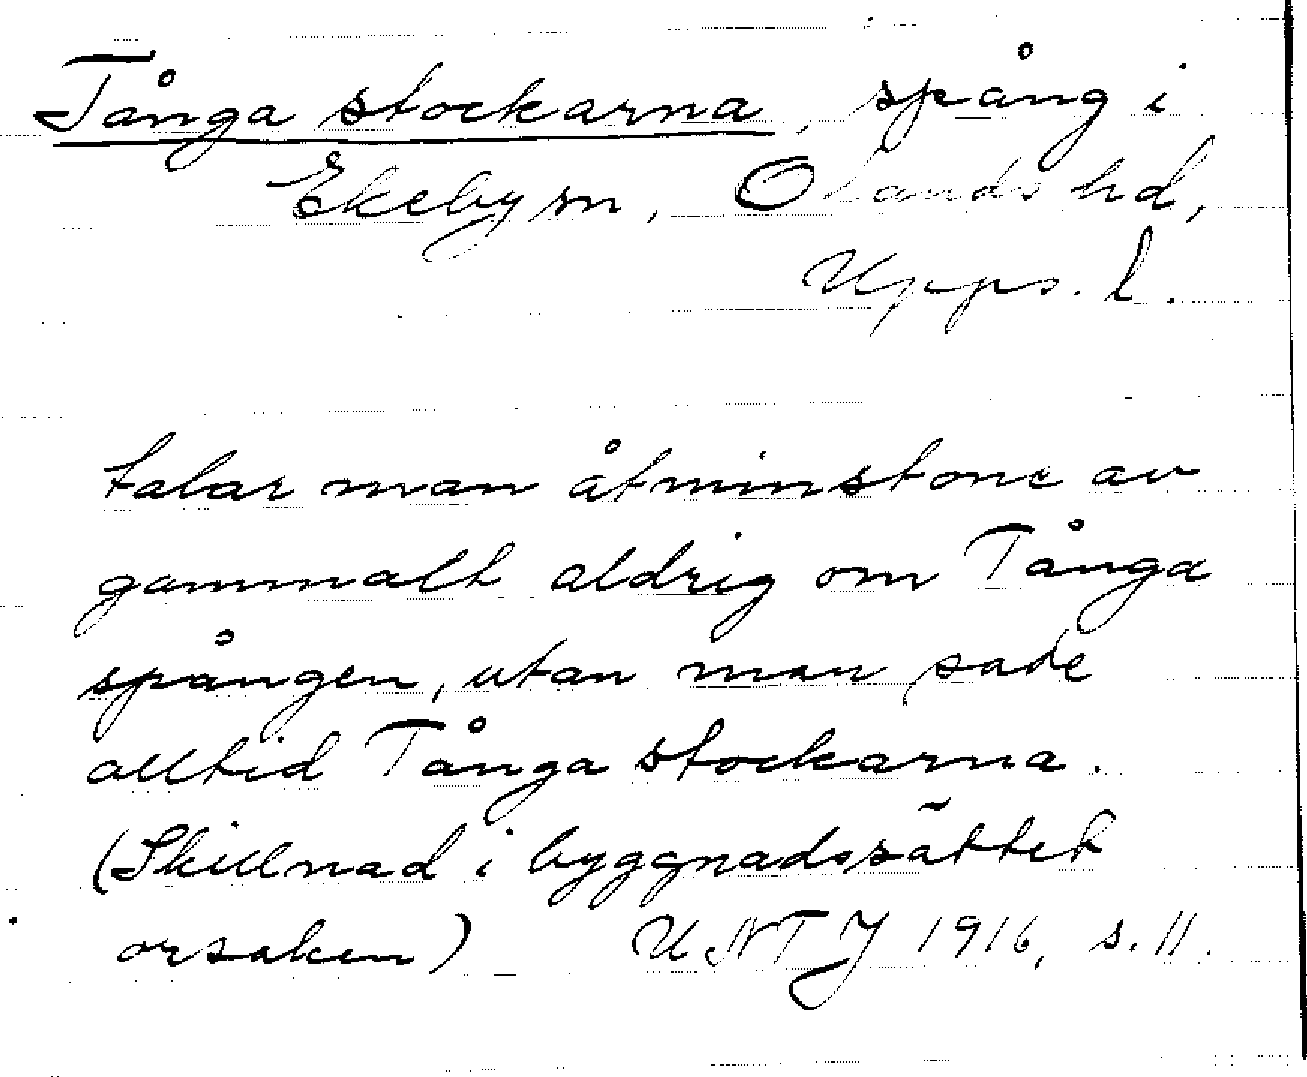 Tånga stockarna, spång i
Ekeby sn, Olands hd,
Upps. l.
talar man åtminstone av
gammalt aldrig om Tånga
spången, utan man sade
alltid Tånga stockarna.
(Skillnad i byggnadssättet
orsaken) UNTJ 1916, s. 11.